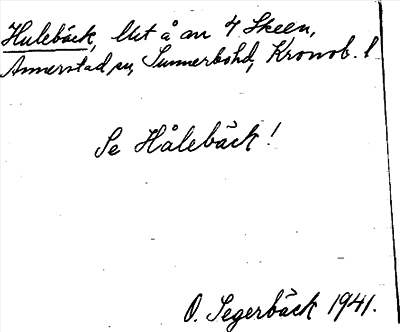 Hulebäck, lht å an 4 Skeen,
Annerstad sn, Sunnerbohd, Kronob. l
Se Hålebäck!
O. Segerbäck 1941.